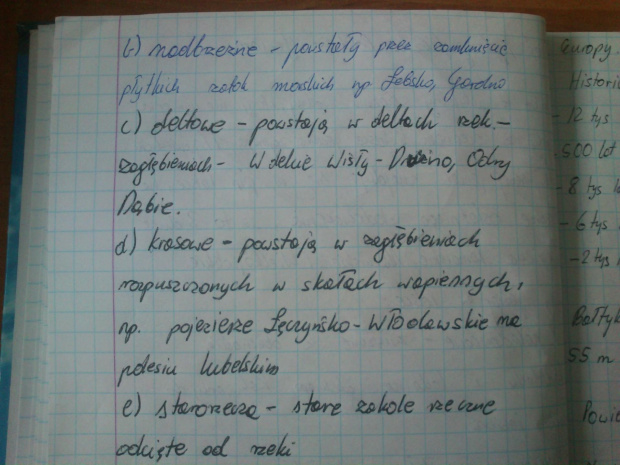 b) nadbrzeżne - powstały przez zamknięcie
płytkich zatok morskich np Łebsko, Gardno
c) deltowe - powstają w deltach rzek -
zagłębieniach - w delcie Wisły - Druzno, Odry
Dąbie.
d) krasowe - powstają w zagłębieniach
rozpuszczonych w skałach wapiennych,
np. pojezierze Łęczyńsko-Włodawskie na
polesiu lubelskim
e) starorzecza - stare zakole rzeczne
odcięte od rzeki
Europy.
Histori
- 12 tys
- 500 lat
- 8 tys
- 6 tys
- 2 tys
Bałtyk
55 m